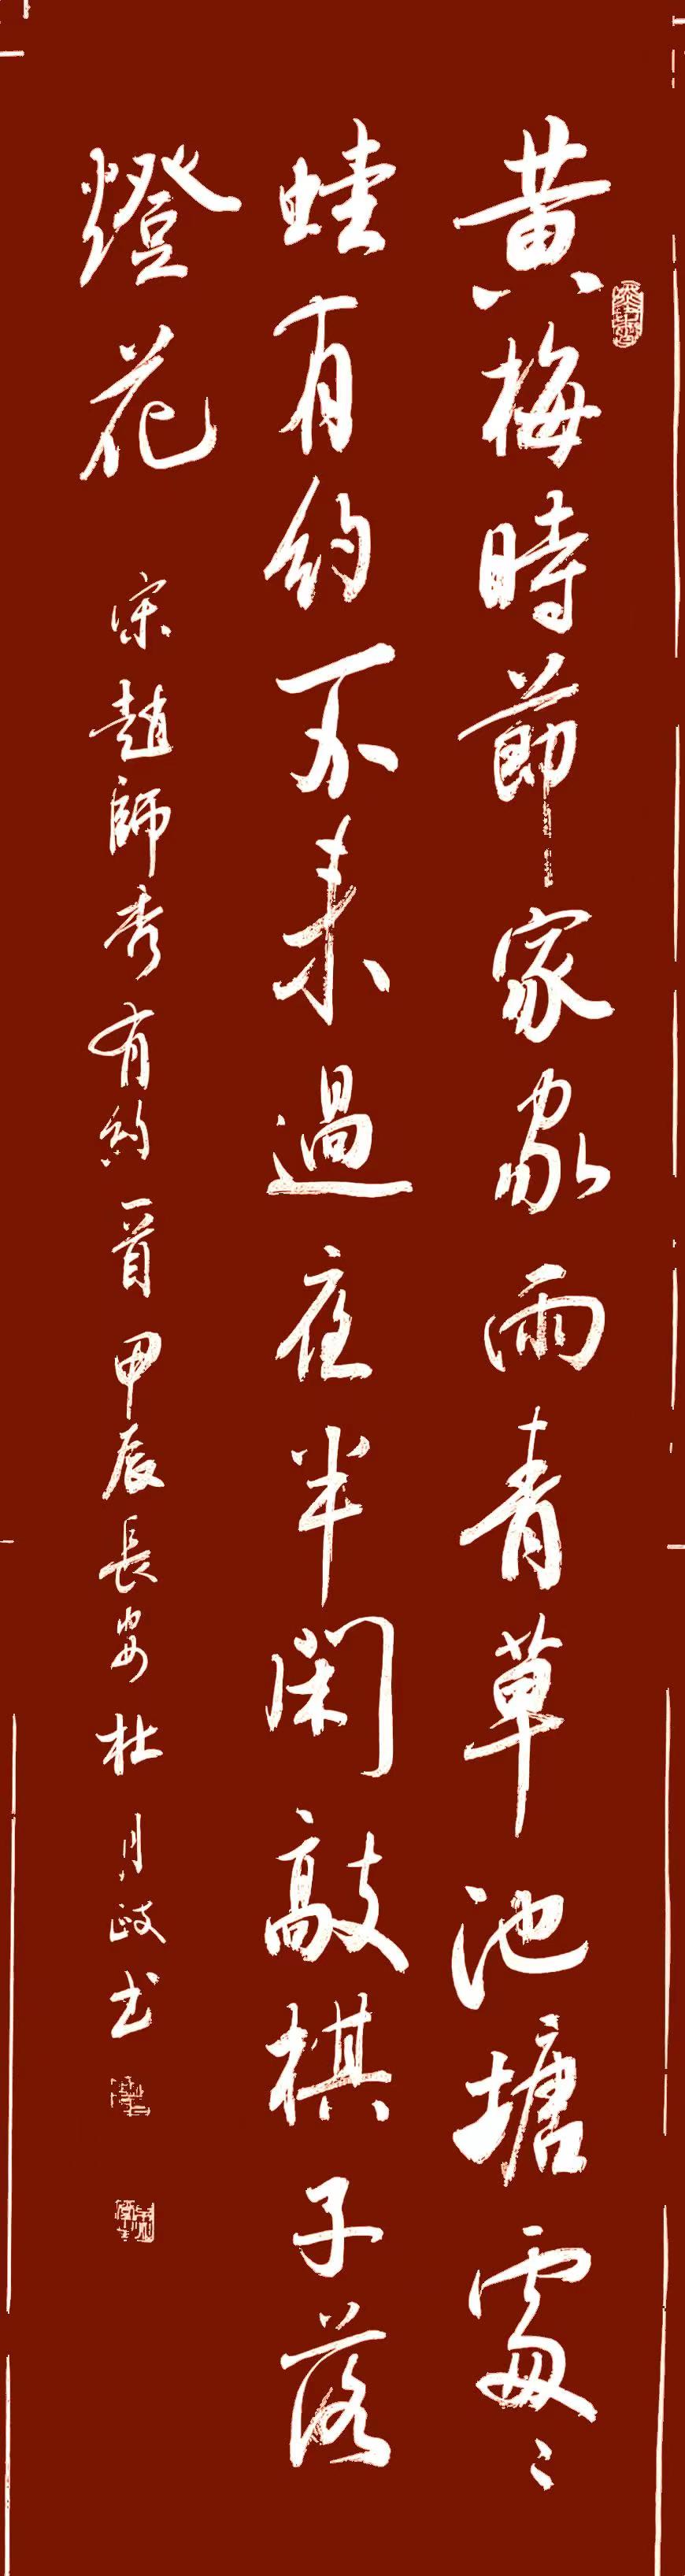 黄梅時節家家雨青草池塘處〻
蛙有約不来過夜半閑敲棋子落
燈花
宋趙師秀有約一首甲辰長安杜月政书